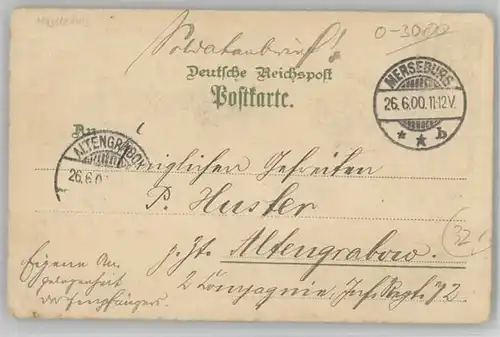 Soldatenbrief!
0-3000
Deutsche Reichspost
Postkarte.
MERSEBURG
26.6.00. 11-12V.
* * b
An
ALTENGRABOW
26.6.0
Gefreiten
P. Huster
z. Zt. Altengrabow.
2 Compagnie, Inf. Regt.
32
Eigene An-
gelegenheit
des Empfängers.